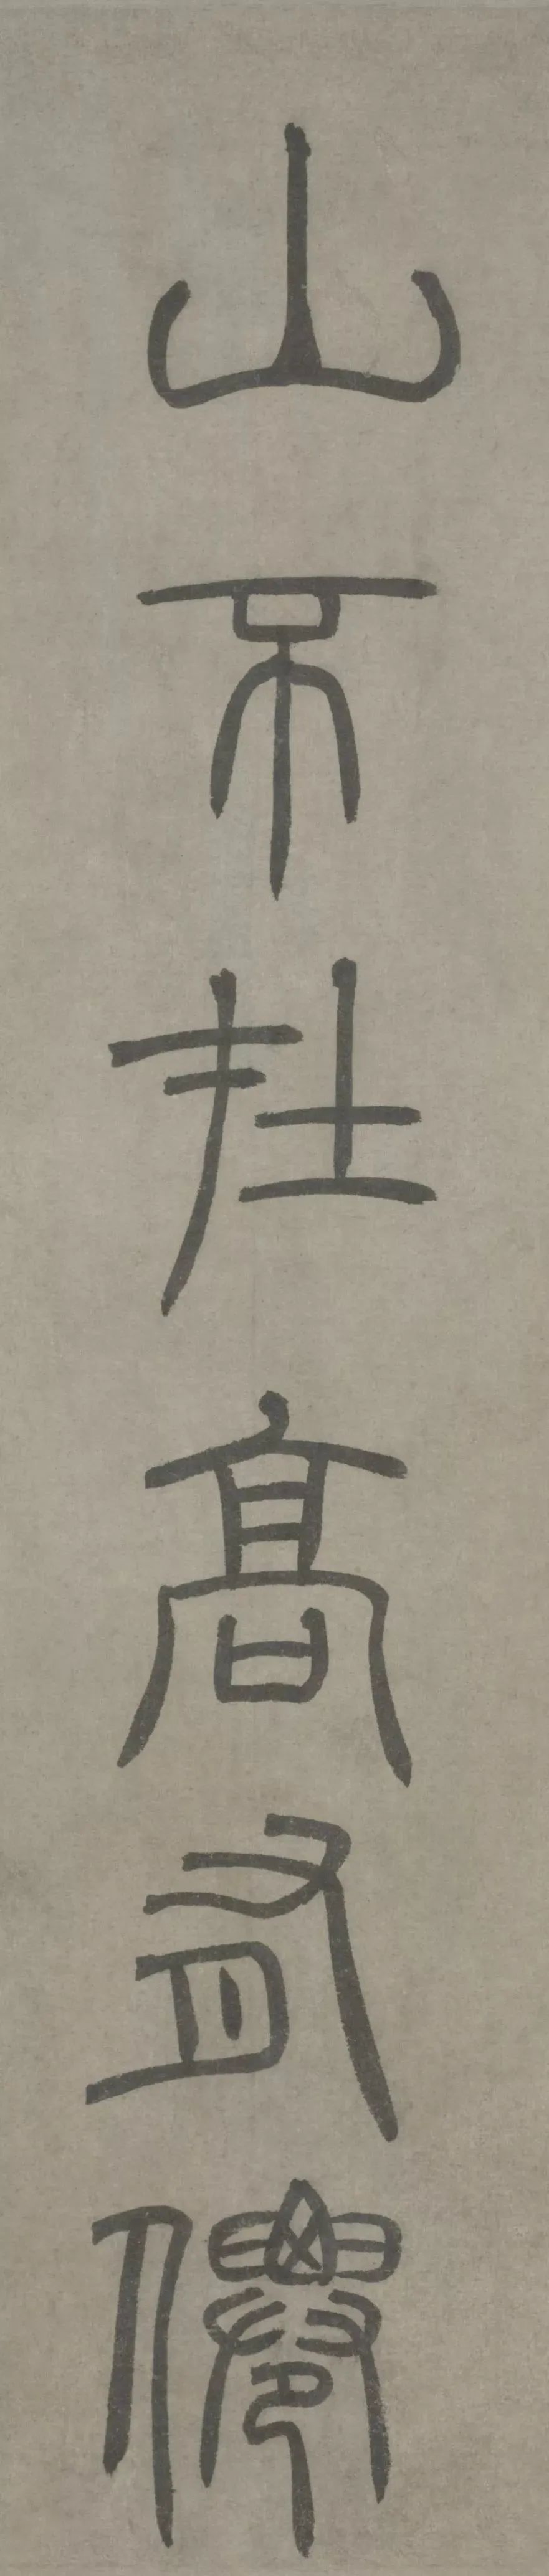 山不在高有僊